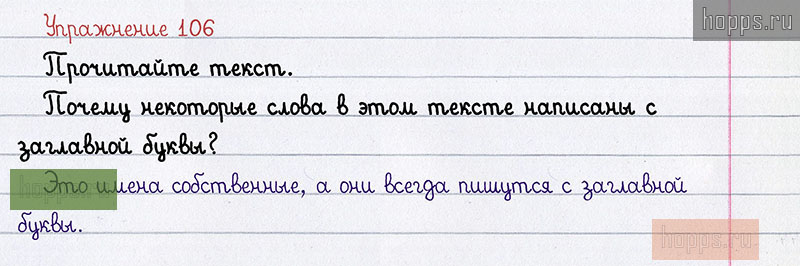 Упражнение 106
hopps.ru
Прочитайте текст.
Почему некоторые слова в этом тексте написаны с
заглавной буквы?
Это имена собственные, а они всегда пишутся с заглавной
hopps.ru
буквы.
hopps.ru